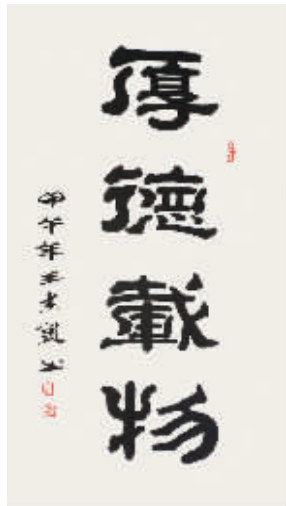 厚德載物
甲午年王